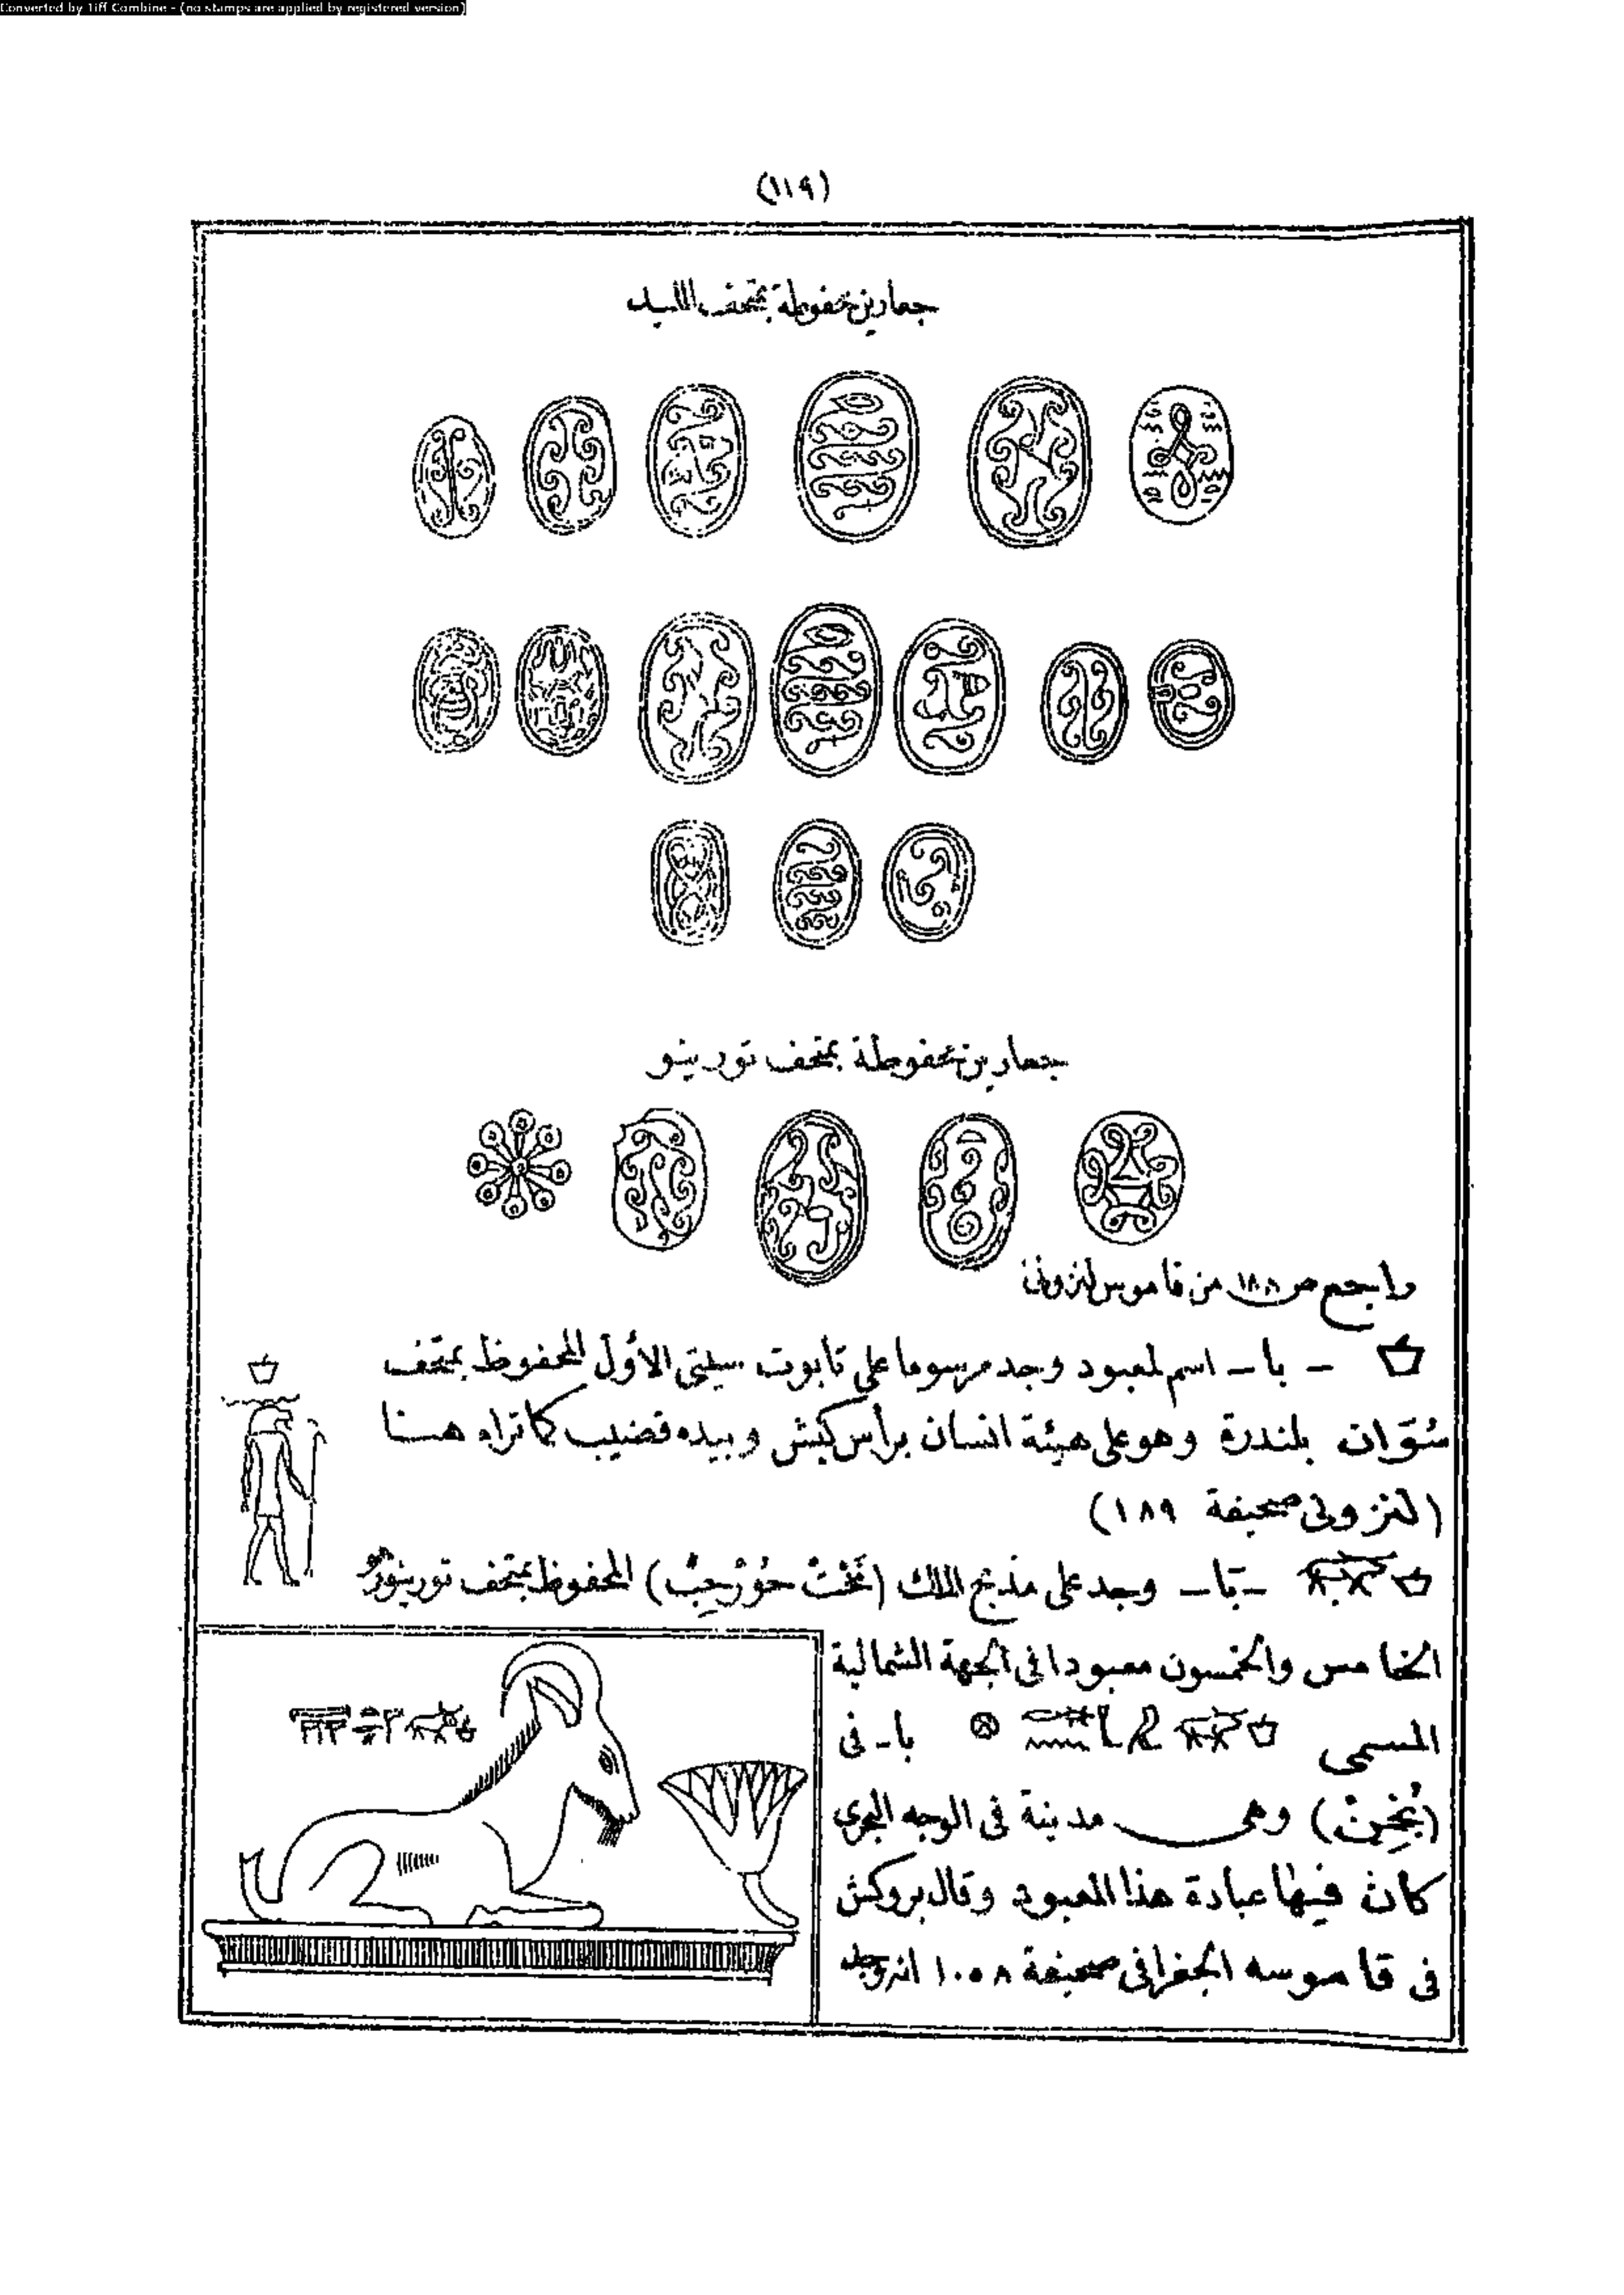 Converted by Tiff Combine - (no stamps are applied by registered version)
(١١٩)
جعارين محفوظة بمتحف الليد
جعارين محفوظة بمتحف تورينو
وراجع ص ١٨٨ من قاموس لنزونى
– با – اسم لمعبود وجد مرسوما على تابوت سيتى الاوّل المحفوظ بمتحف
سُوّان بلندرة وهو على هيئة انسان برأس كبش وبيده قضيب كما تراه هنا
(لنزونى صحيفة ١٨٩)
– با – وجد على مذبح الملك (نَخْتْ حُوْرْحِبْ) المحفوظ بمتحف تورينو
الخامس والخمسون معبودا فى الجهة الشمالية
المسمى با – فى
وهى مدينة فى الوجه البحرى
كان فيها عبادة هذا المعبود وقال بروكش
فى قاموسه الجغرافى صحيفة ١٠٥٨ انه وجد